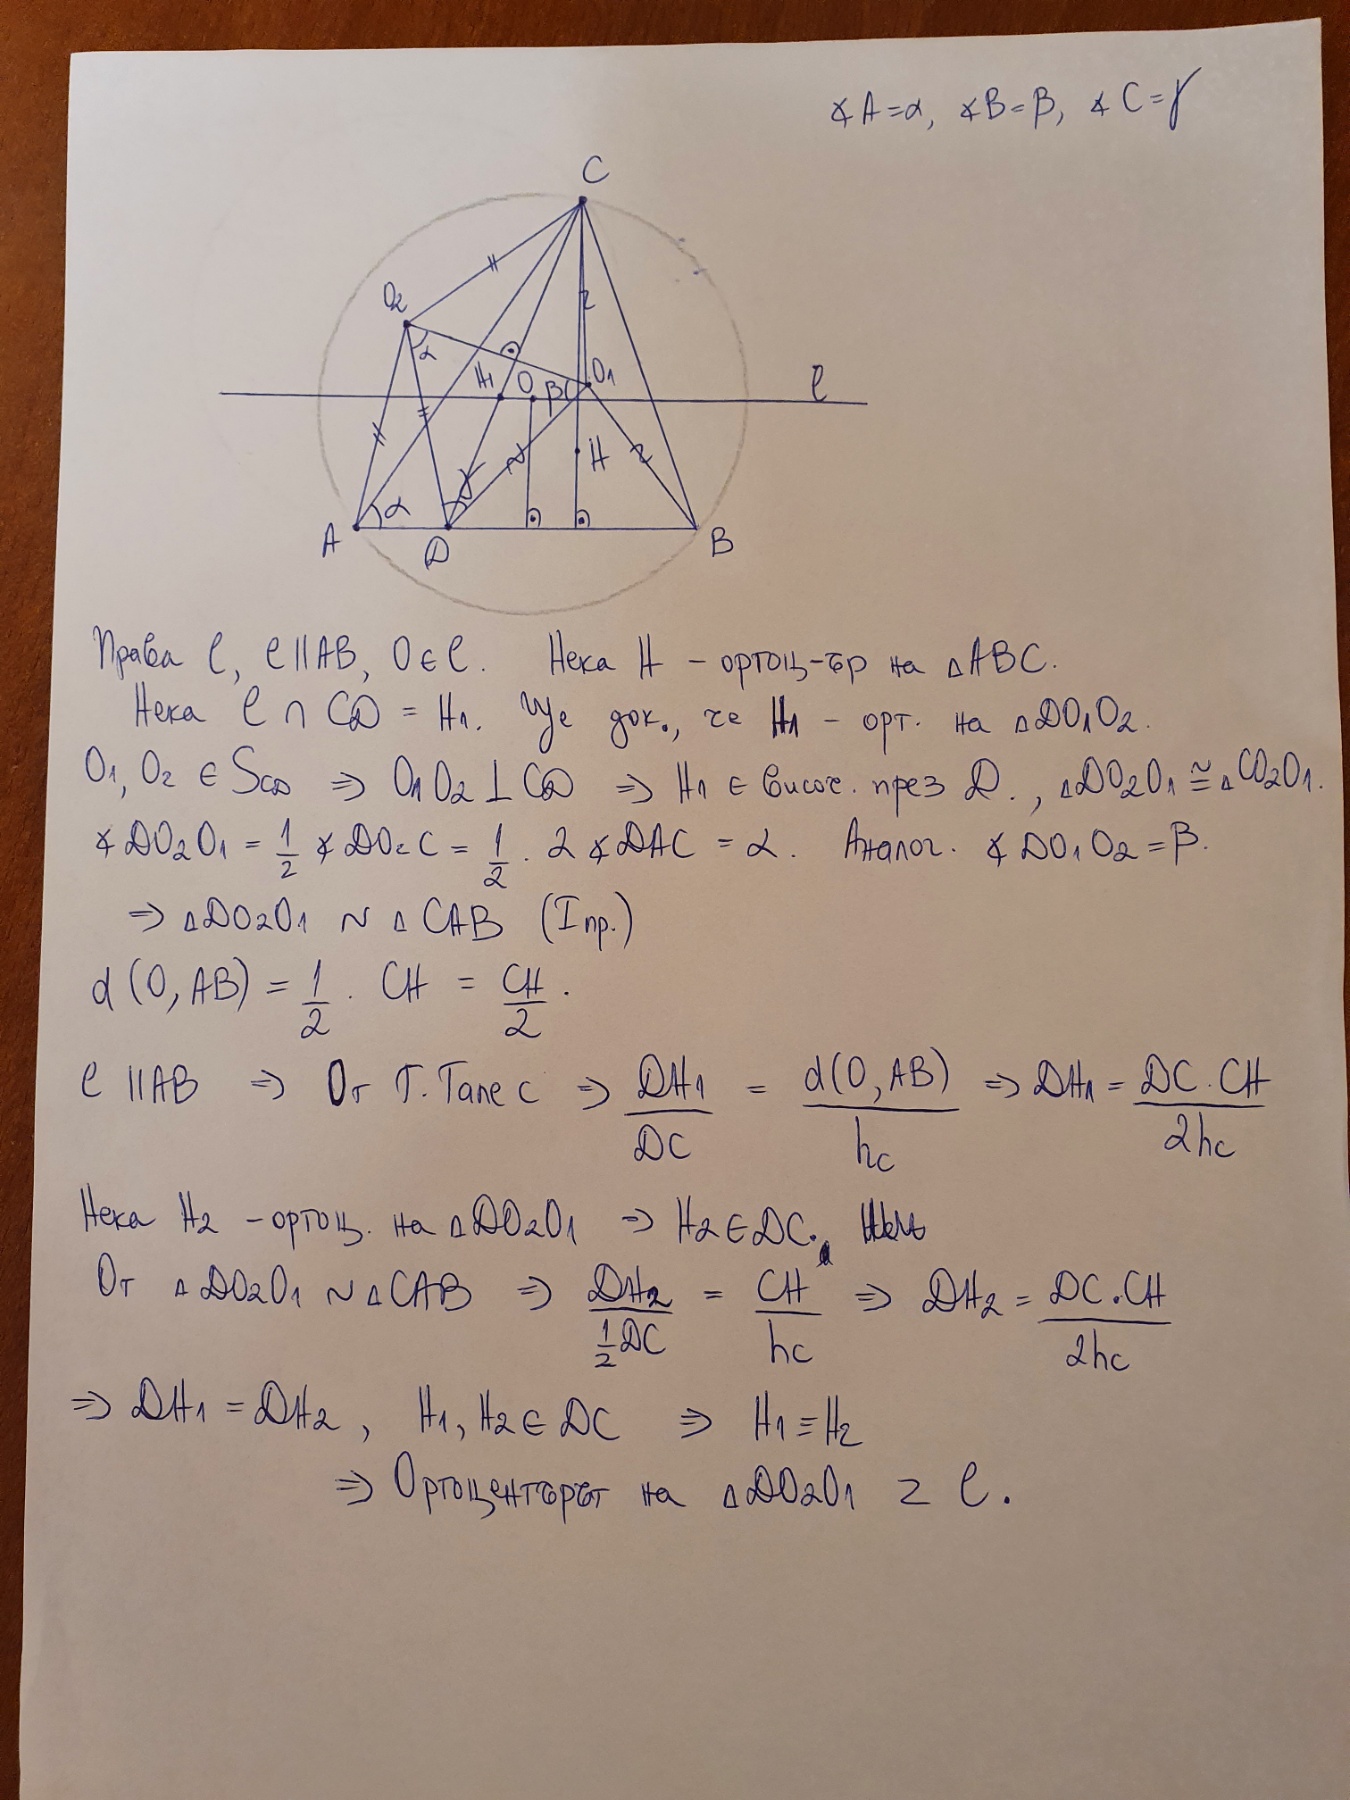 ∢A=α, ∢B=β, ∢C=γ
C
O₂
α
H₁ O β O₁ l
H
γ
A α D B
Права l, l∥AB, O∈l. Нека H – ортоц-ър на △ABC.
Нека l ∩ CD = H₁. Ще док., че H₁ – орт. на △DO₁O₂.
O₁, O₂ ∈ S_CD ⇒ O₁O₂⊥CD ⇒ H₁ ∈ височ. през D., △DO₂O₁ ≅ △CO₂O₁.
∢DO₂O₁ = 1/2 ∢DO₂C = 1/2 . 2∢DAC = α. Аналог. ∢DO₁O₂ = β.
⇒ △DO₂O₁ ~ △CAB (I пр.)
d(O, AB) = 1/2 . CH = CH/2 .
l ∥AB ⇒ От Т. Талес ⇒ DH₁/DC = d(O, AB)/hc ⇒ DH₁ = DC.CH/2hc
Нека H₂ – ортоц. на △DO₂O₁ ⇒ H₂∈DC.
От △DO₂O₁ ~ △CAB ⇒ DH₂/(1/2 DC) = CH/hc ⇒ DH₂ = DC.CH/2hc
⇒ DH₁ = DH₂, H₁, H₂∈ DC ⇒ H₁≡H₂
⇒ Ортоцентърът на △DO₂O₁ z l.